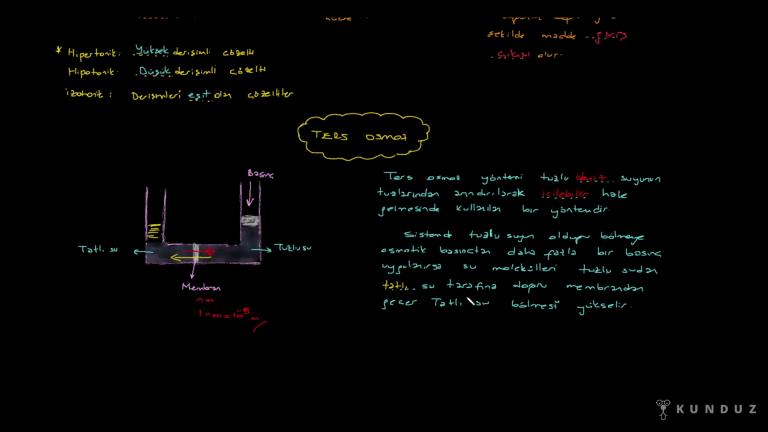 şekilde madde .giriş
.çıkışı olur.
* Hipertonik: .Yüksek derişimli çözelti
Hipotonik: .Düşük derişimli çözelti
izotonik: Derişimleri eşit olan çözeltiler
TERS OSMOZ
Basınç
Tatlı su
Tuzlu su
Membran
nm
Ters osmoz yöntemi tuzlu deniz suyunun
tuzlarından arındırılarak içilebilir hale
gelmesinde kullanılan bir yöntemdir
Sistemde tuzlu suyun olduğu bölmeye
osmotik basınçtan daha fazla bir basınç
uygulanırsa su molekülleri tuzlu sudan
tatlı su tarafına doğru membrandan
geçer Tatlı su bölmesi yükselir.
KUNDUZ